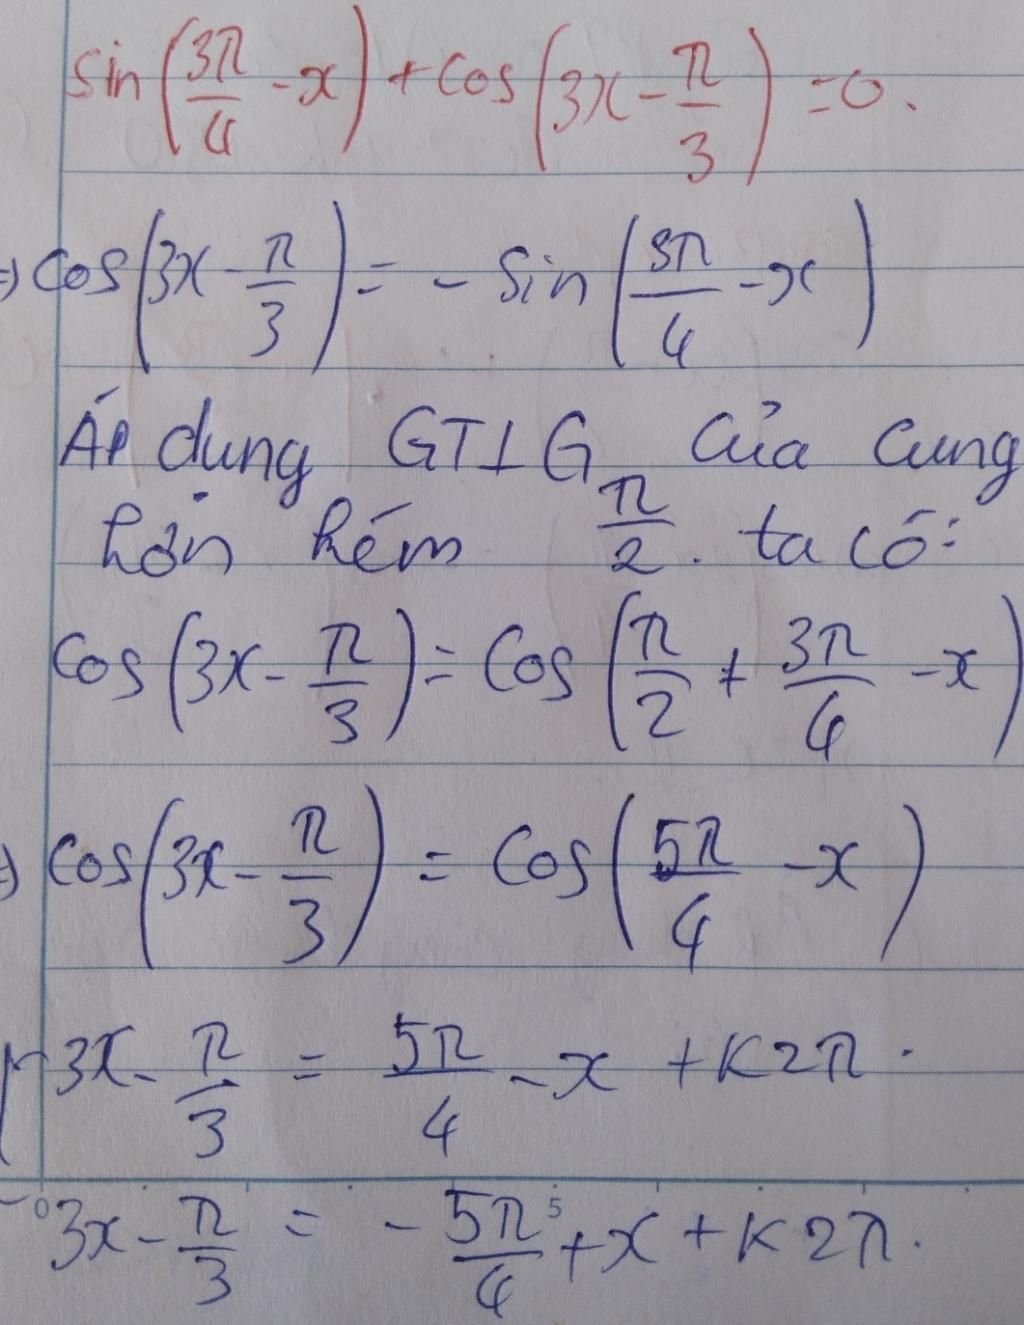 sin(3π/4 - x) + cos(3x - π/3) = 0.
⇒ cos(3x - π/3) = - sin(3π/4 - x)
Áp dụng GTLG của cung
hơn kém π/2. ta có:
cos(3x - π/3) = cos(π/2 + 3π/4 - x)
⇒ cos(3x - π/3) = cos(5π/4 - x)
3x - π/3 = 5π/4 - x + k2π.
3x - π/3 = - 5π/4 + x + k2π.
0 5